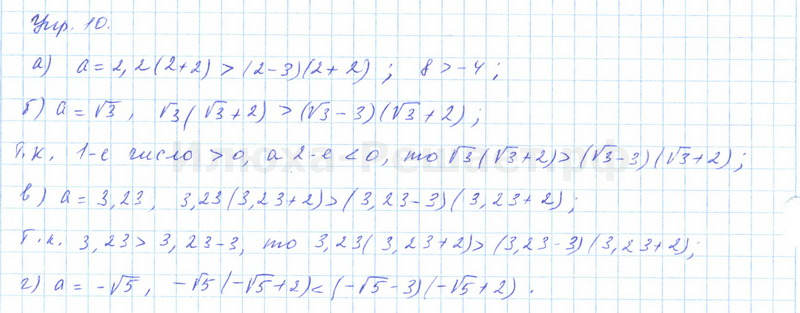 Упр. 10.
а) a = 2, 2(2+2) > (2-3)(2+2) ; 8 > -4 ;
б) a = √3, √3(√3+2) > (√3-3)(√3+2) ;
т.к. 1-е число > 0, а 2-е < 0, то √3(√3+2) > (√3-3)(√3+2) ;
в) a = 3,23, 3,23(3,23+2) > (3,23-3)(3,23+2) ;
т.к. 3,23 > 3,23-3, то 3,23(3,23+2) > (3,23-3)(3,23+2) ;
г) a = -√5, -√5(-√5+2) < (-√5-3)(-√5+2) .